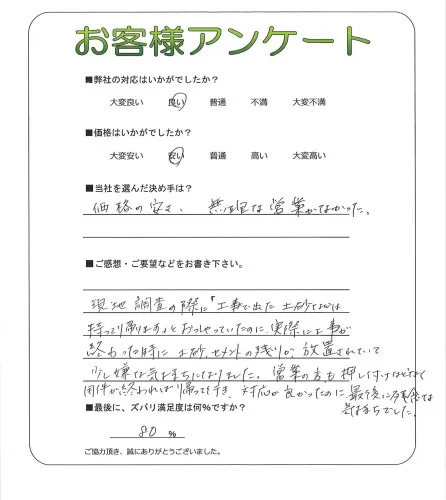 お客様アンケート
■弊社の対応はいかがでしたか？
大変良い　良い　普通　不満　大変不満
■価格はいかがでしたか？
大変安い　安い　普通　高い　大変高い
■当社を選んだ決め手は？
価格の安さ、無理な営業がなかった。
■ご感想・ご要望などをお書き下さい。
現地調査の際に「工事で出た土砂などは
持って帰ります」とおっしゃっていたのに、実際に工事が
終わった時に土砂、セメントの残りが放置されていて
少し嫌な気持ちになりました。営業の方も押し付けはなく
用件が終われば帰って行き、対応が良かったのに、最後に残念な
気持ちでした。
■最後に、ズバリ満足度は何%ですか？
80 %
ご協力頂き、誠にありがとうございました。